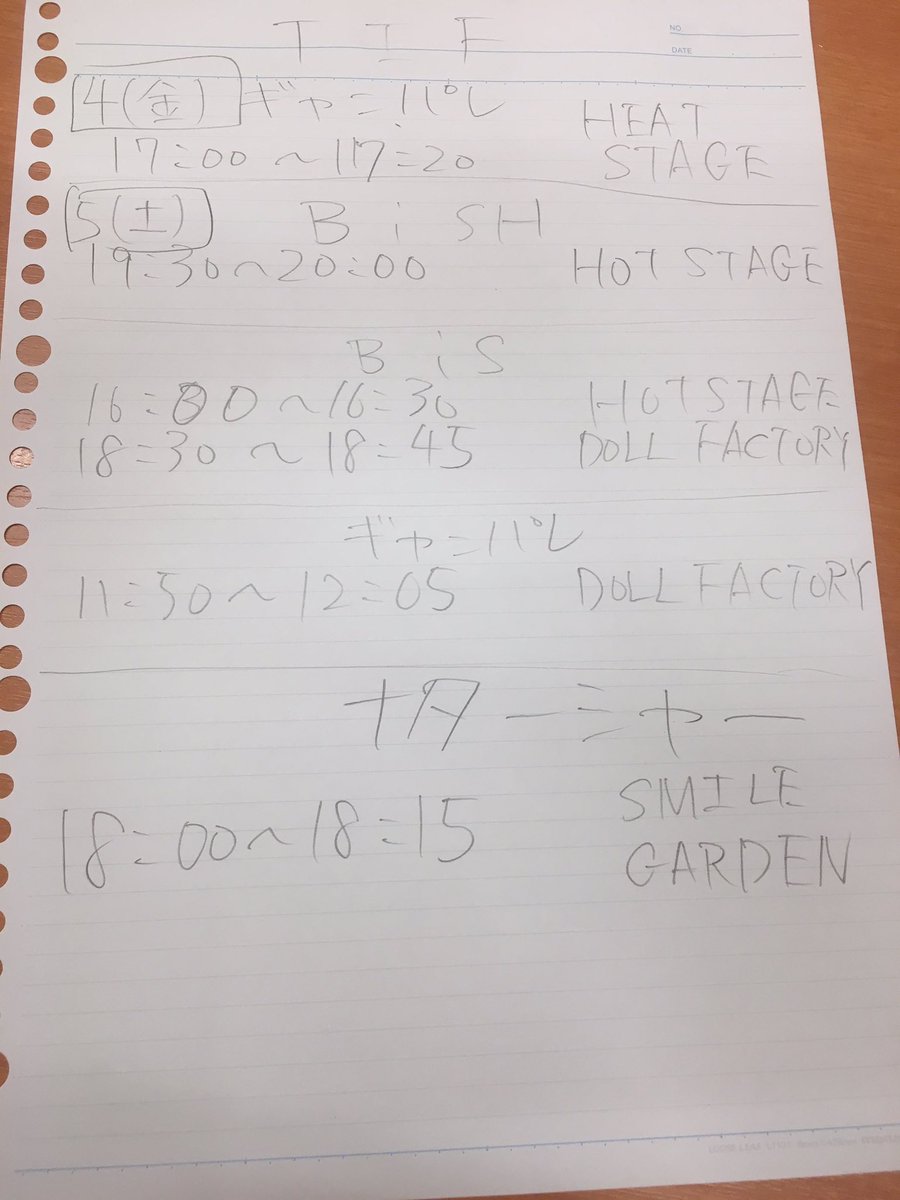 NO
DATE
TIF
4(金) ギャニパル HEAT
17:00～17:20 STAGE
5(土) BiSH
19:30～20:00 HOT STAGE
BiS
16:00～16:30 HOT STAGE
18:30～18:45 DOLL FACTORY
ギャニパル
11:50～12:05 DOLL FACTORY
ナターシャー
SMILE
18:00～18:15 GARDEN